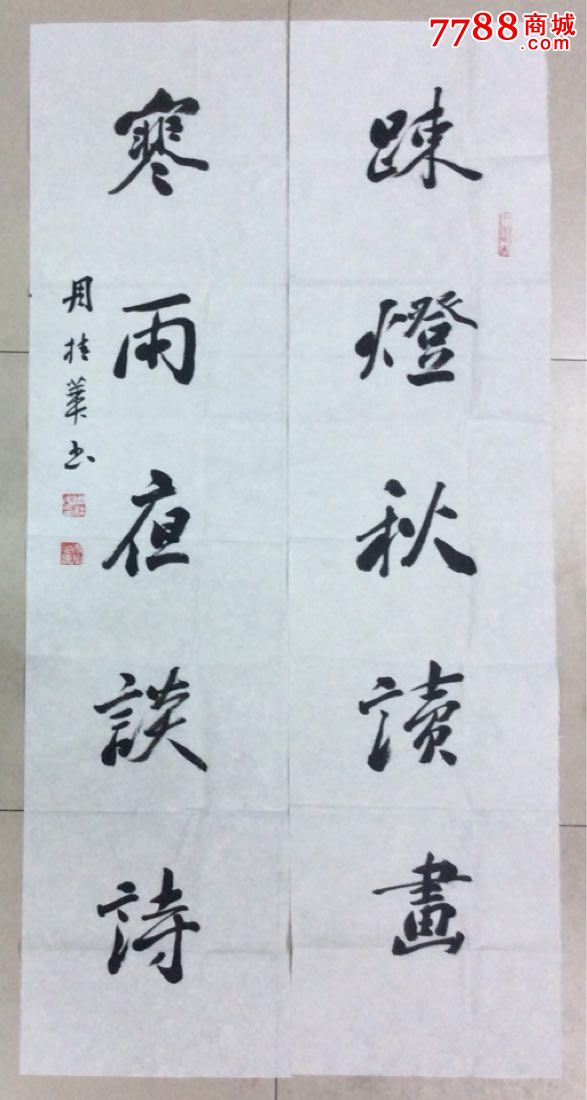 7788商城
.com
踈燈秋讀畫
寒雨夜談詩
周桂華书